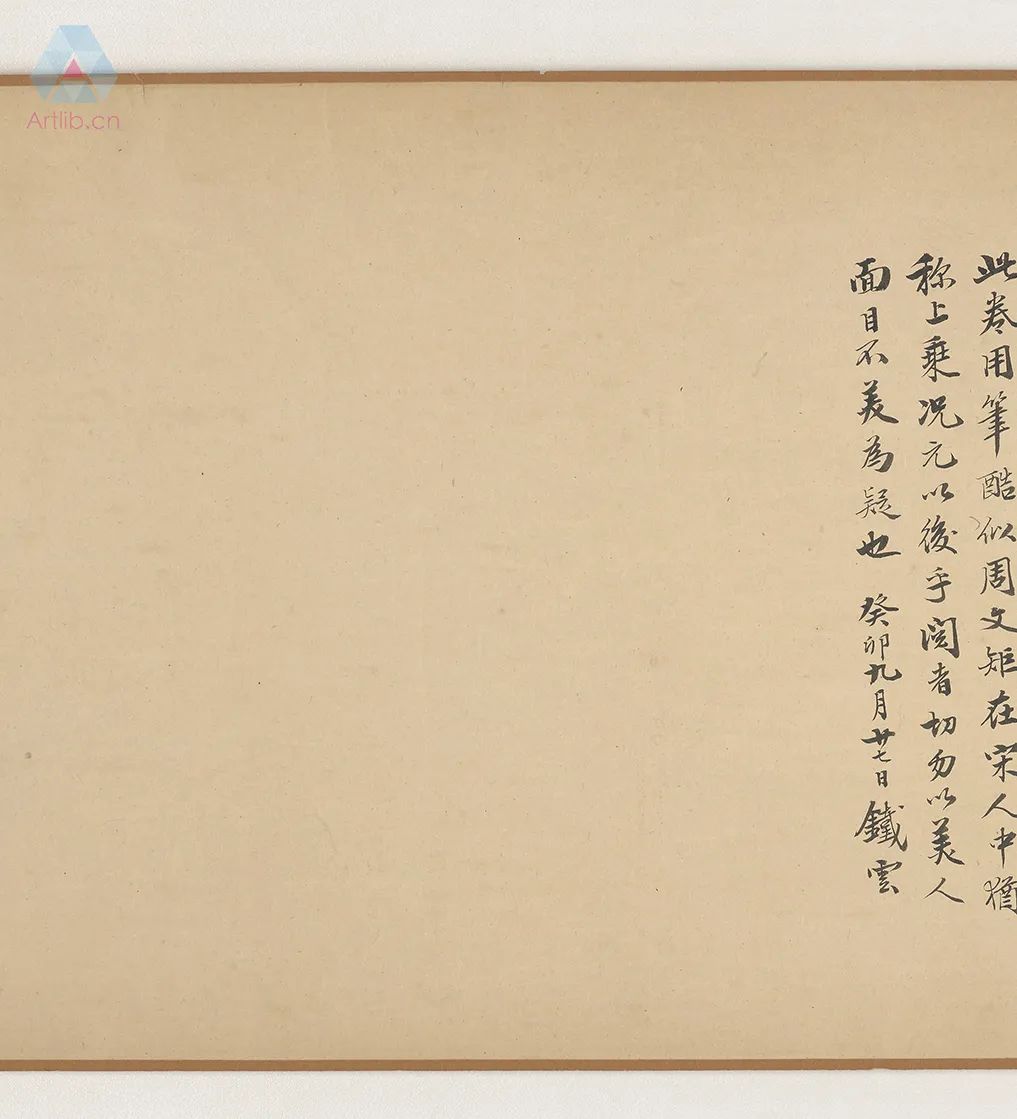 此卷用筆酷似周文矩在宋人中猶
称上乗况元以後乎閲者切勿以美人
面目不美為疑也 癸卯九月廿七日鐵雲
Artlib.cn